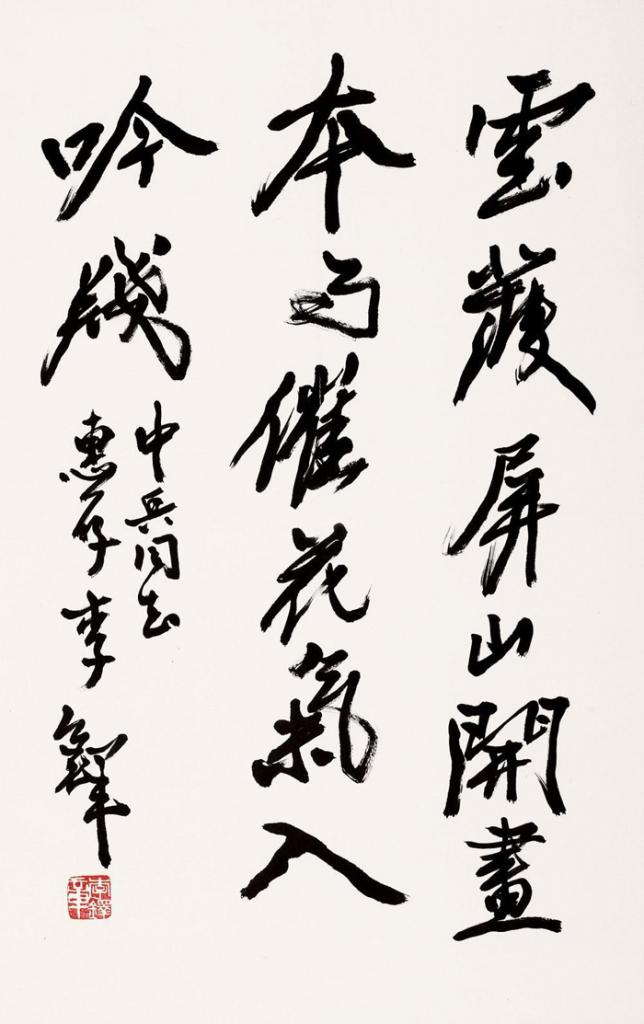 雲護屏山開畫
本雨催花氣入
吟牋
中兵同志
惠存李鐸